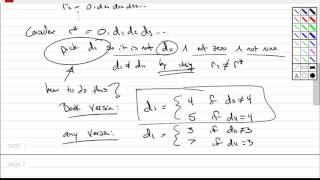 r₁ = 0.d₁₁d₁₂d₁₃...
Consider r* = 0.d₁d₂d₃...
pick d₁ so it is not d₁₁ & not zero & not nine
d₁ ≠ d₁₁ by using r₁ ≠ r*
how to do this }
Book version: d₁ = { 4 if d₁₁ ≠ 4
5 if d₁₁ = 4
any version: d₁ = { 3 if d₁₁ ≠ 3
7 if d₁₁ = 3
page 1
page 2